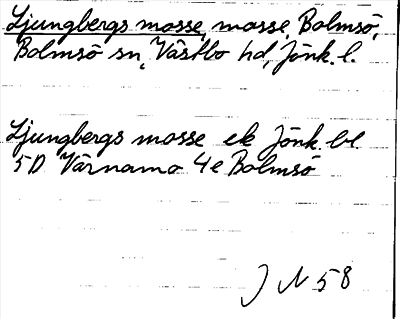 Ljungbergs mosse, mosse, Bolmsö,
Bolmsö sn, Västbo hd, Jönk. l.
Ljungbergs mosse ek Jönk. bl
5D Värnamo 4e Bolmsö
J N 58